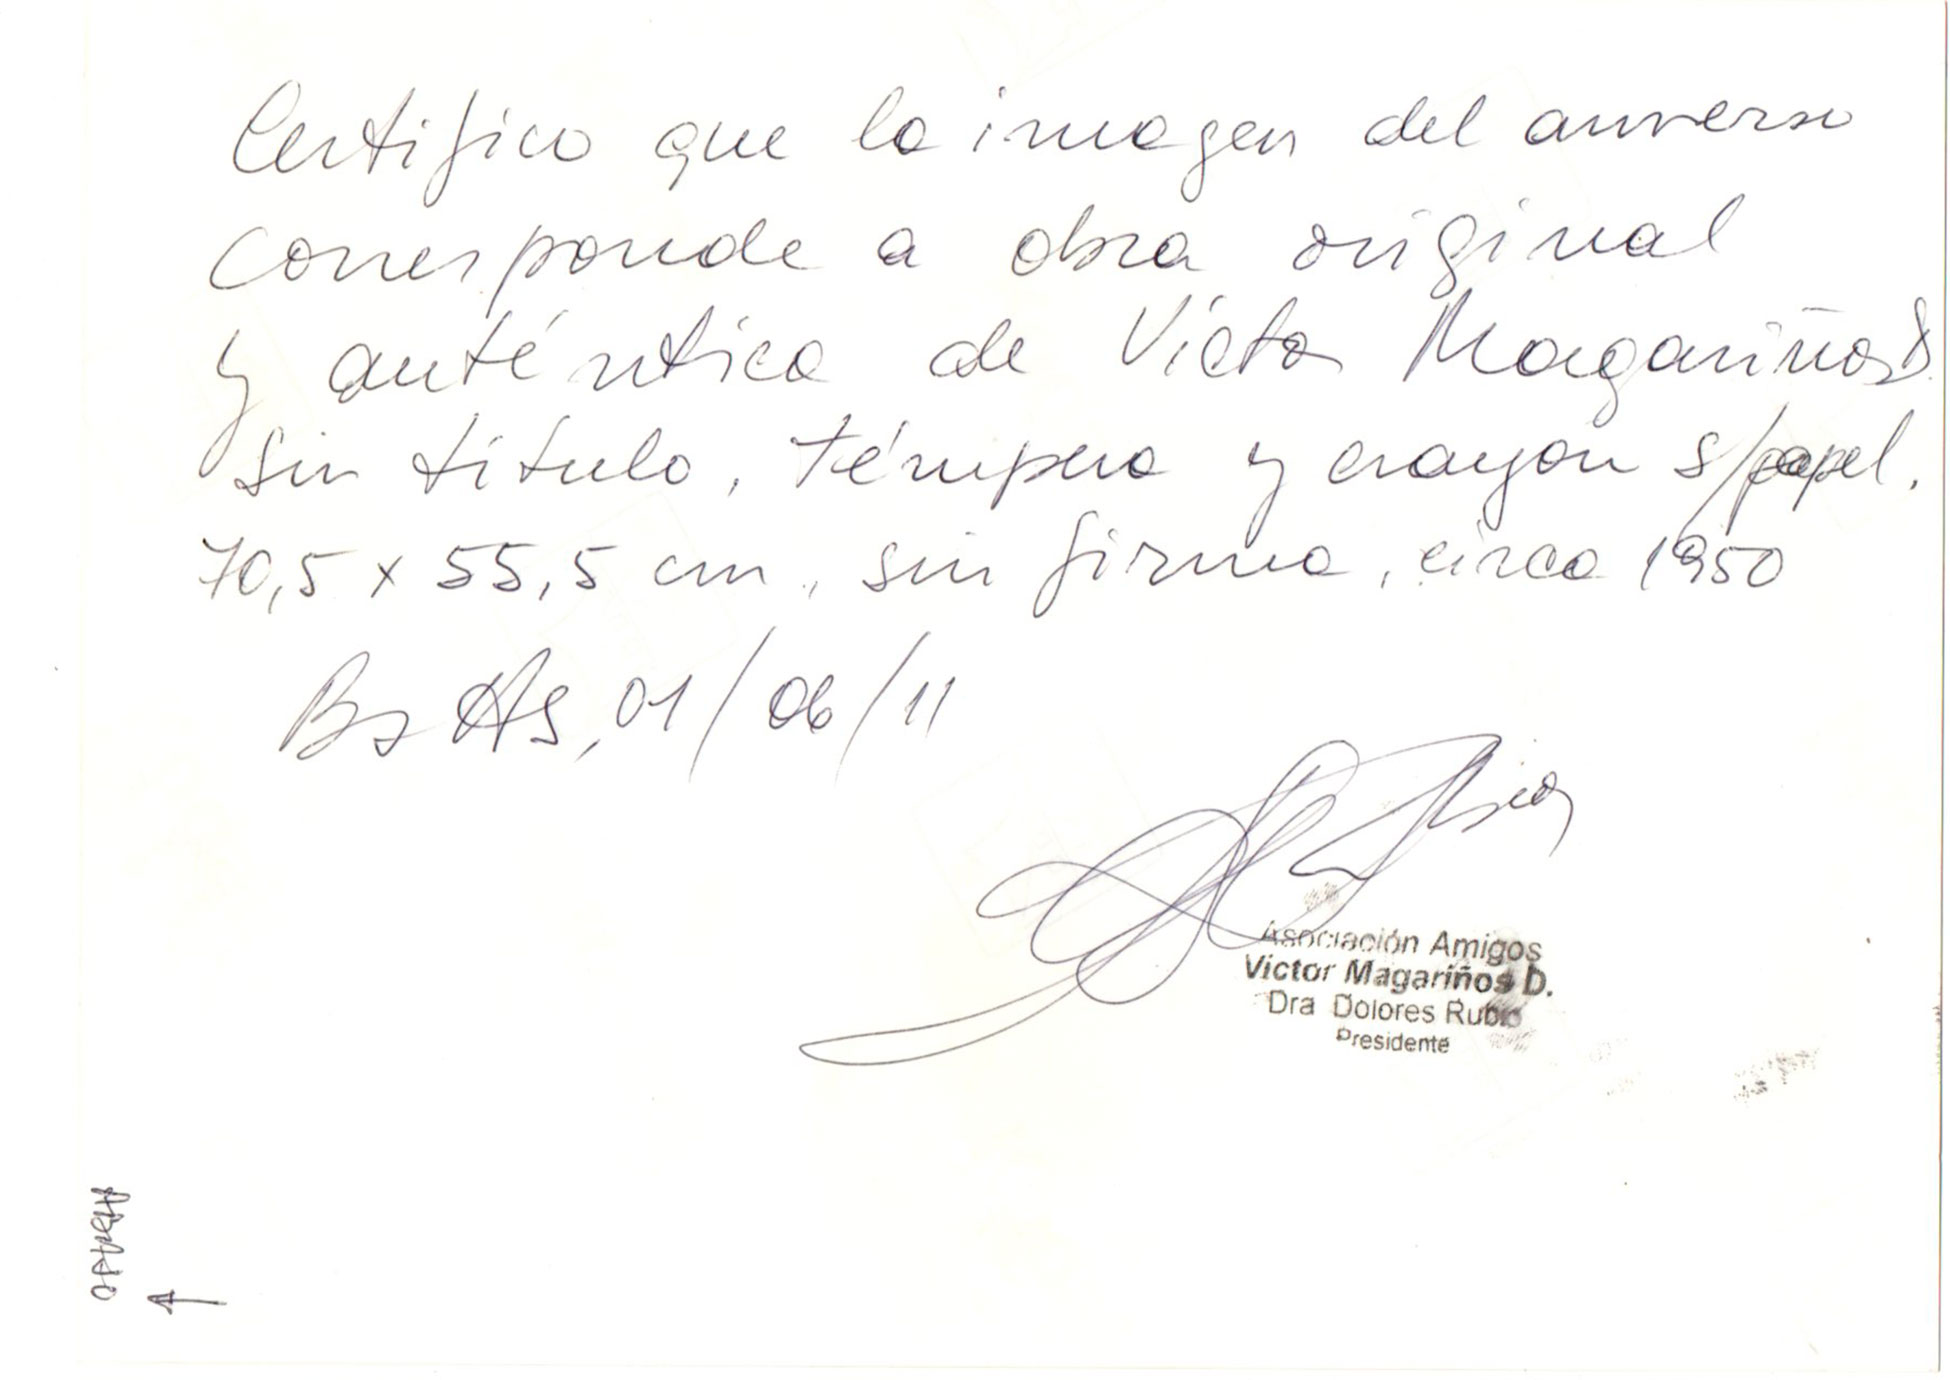 Certifico que la imagen del anverso
corresponde a obra original
y auténtica de Víctor Magariños D.
sin título, témpera y crayon s/papel.
70,5 x 55,5 cm, sin firma, circa 1950
Bs As, 01/06/11
Asociación Amigos
Victor Magariños D.
Dra Dolores Rubio
Presidente